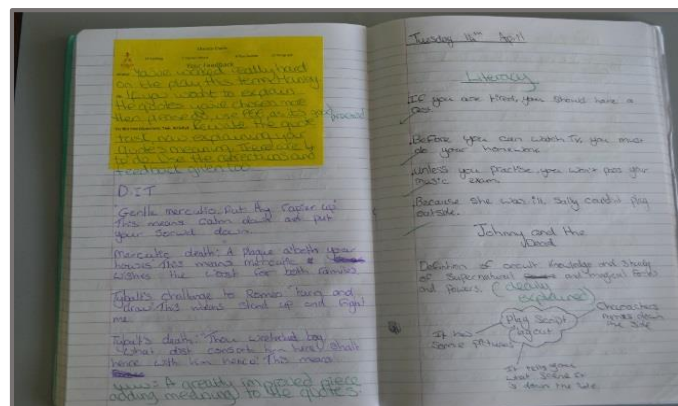 Your Feedback
You've worked really hard
on the play this term
If you want to explain
the quotes you've chosen
quote's meaning.
to do. Use the
feedback given too.
D.I.T
"Gentle mercutio: Put thy rapier up"
This means calm down and put
your down.
Mercutio death: A plague a both your
houses. This means mercutio
wishes the worst for both families
Tybalt's challenge to Romeo: "turn and
draw". This means stand up and fight
me.
Tybalt's death: Thou wretched boy
that dost consort him here shalt
hence with him hence. This means
A greatly improved piece
adding meaning to the quotes.
Tuesday April
Literacy
If you are tired, you should have a
rest.
Before you can watch TV, you must
do your homework.
Unless you practise, you won't pass your
music exam.
Because she was ill, Sally couldn't play
outside.
Johnny and the
Dead
Definition of occult Knowledge and study
of supernatural and magical forces
and powers. (clearly
explained)
Play Script
layout
Characters
names down
the side
It has
some pictures
It tells you
what scene it
is down the side.